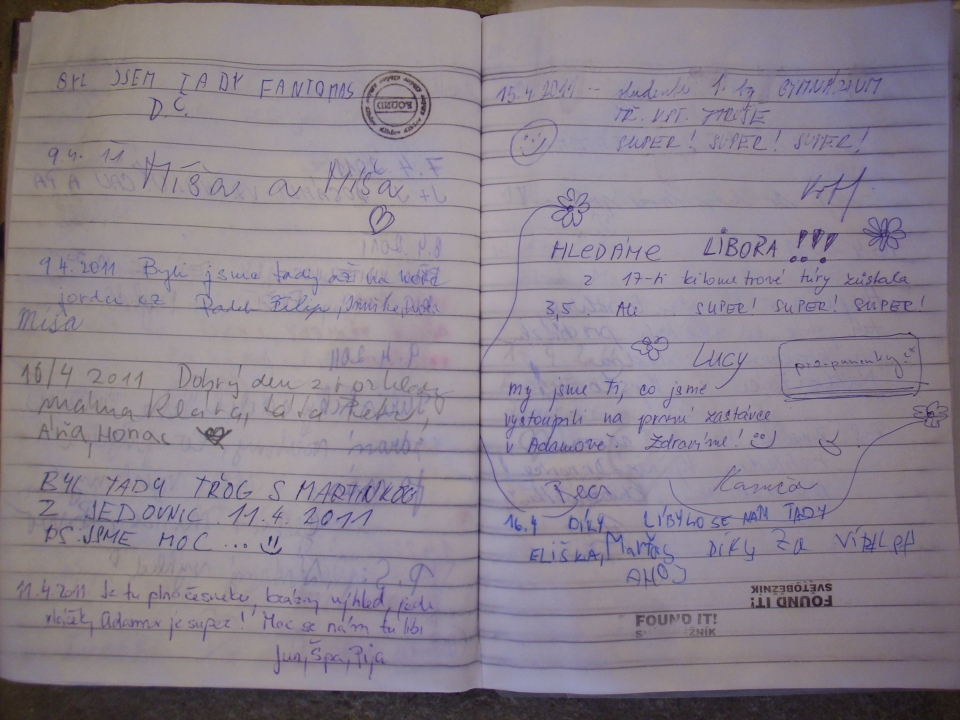 BYL JSEM TADY FANTOMAS
D.C.
9 4. 11 Míša a Míša
9 4. 2011 Byli jsme tady až na
Míša
10/4 2011 Dobrý den z rozhledny
máma Klára, táta Petr,
Áňa, Honac
BYL TADY TRÓG S MARTINKOU
Z JEDOVNIC 11.4. 2011
PS: JSME MOC ...
11.4 2011 Je tu plno česneku, krásný výhled, jede
vláček, Adamov je super! Moc se nám tu líbí
Jun, Špa, Pija
15.4 2011 -- studenti 1. GYMNÁZIUM
TŘ. KPT. JAROŠE
SUPER! SUPER! SUPER!
HLEDÁME LIBORA !!!
z 17-ti kilometrové túry zůstala
3,5 Ale SUPER! SUPER! SUPER!
LUCY
pro-panenky.cz
my jsme ti, co jsme
vystoupili na první zastávce
v Adamově. Zdravíme!
16.4 DÍKY LÍBYLO SE NÁM TADY
ELIŠKA, DÍKY Za
AHOJ
FOUND IT!
SVĚTOBĚŽNÍK
FOUND IT!